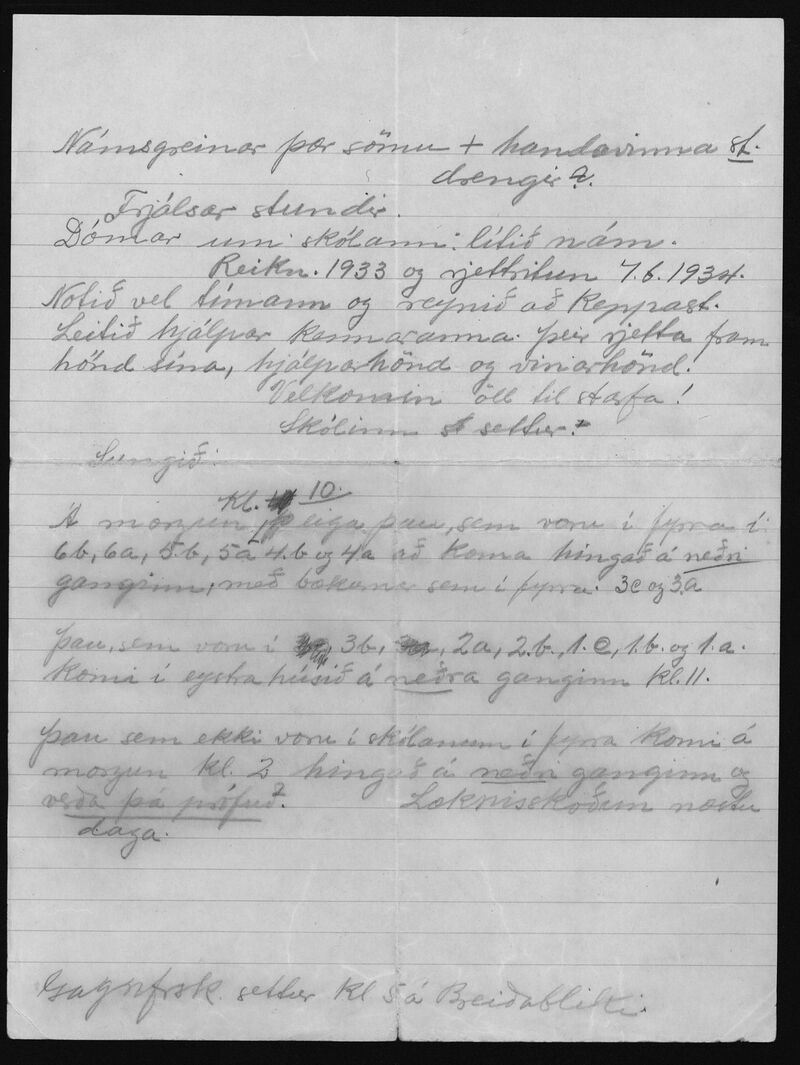 Námsgreinar þær sömu + handavinna st.
drengir.
Frjálsar stundir.
Dómar um skólann: lítið nám.
Reikn. 1933 og rjettritun 7.6.1934.
Notið vel tímann og reynið að keppast.
Leitið hjálpar kennaranna. Þeir rjetta fram
hönd sína, hjálparhönd og vinarhönd.
Velkomin öll til starfa!
Skólinn settur.
Sungið:
Kl. 10.
Á morgun eiga þau, sem voru í fyrra í:
6b, 6a, 5.b, 5a 4.b og 4a að koma hingað á neðri
ganginn, með bækurnar sem í fyrra. 3c og 3.a
Þau, sem voru í 3b, 2a, 2.b, 1.c, 1.b. og 1.a.
komi í eystra húsið á neðra ganginn kl. 11.
Þau sem ekki voru í skólanum í fyrra komi á
morgun kl. 2 hingað á neðri ganginn og
verða þá prófuð. Læknisskoðun næstu
daga.
Gagnfrsk. settur kl 5 á Breiðabliki.